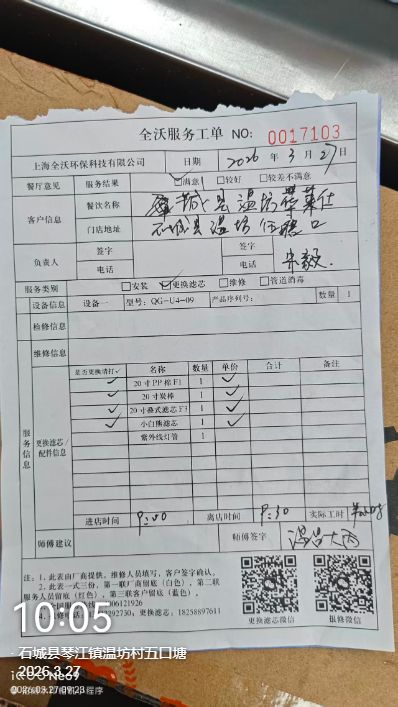 全沃服务工单 NO: 0017103
上海全沃环保科技有限公司 日期 2026 年 3 月 27 日
餐厅意见 服务结果 ☑满意 □较好 □较差不满意
客户信息 餐饮名称 城县温坊
门店地址 石城县温坊
负责人 签字 签字
电话 电话
服务类别 □安装 ☑更换滤芯 □维修 □管道消毒
设备信息 设备一 型号: QG-U4-09 产品序列号: 数量 1
检修信息
维修信息
服务信息
更换滤芯/配件信息
是否更换请打✓ 名称 数量 单价 合计 备注
✓ 20寸PP棉F1 1 ✓
✓ 20寸炭棒 1 ✓
✓ 20寸叠式滤芯F3 1 ✓
✓ 小白熊滤芯 1 ✓
紫外线灯管 1
进店时间 9:00 离店时间 9:30 实际工时
师傅建议 师傅签字
注: 1. 此表由厂商提供。维修人员填写, 客户签字确认。
2. 此表一式三份, 第一联厂商留底(白色), 第二联
服务人员留底(红色), 第三联客户留底(蓝色)。
06121926
292750, 更换滤芯: 18258897611
更换滤芯微信 报修微信
10:05
石城县琴江镇温坊村五口塘
2026.3.27
iQOO Neo9
2026.03.27 09:23